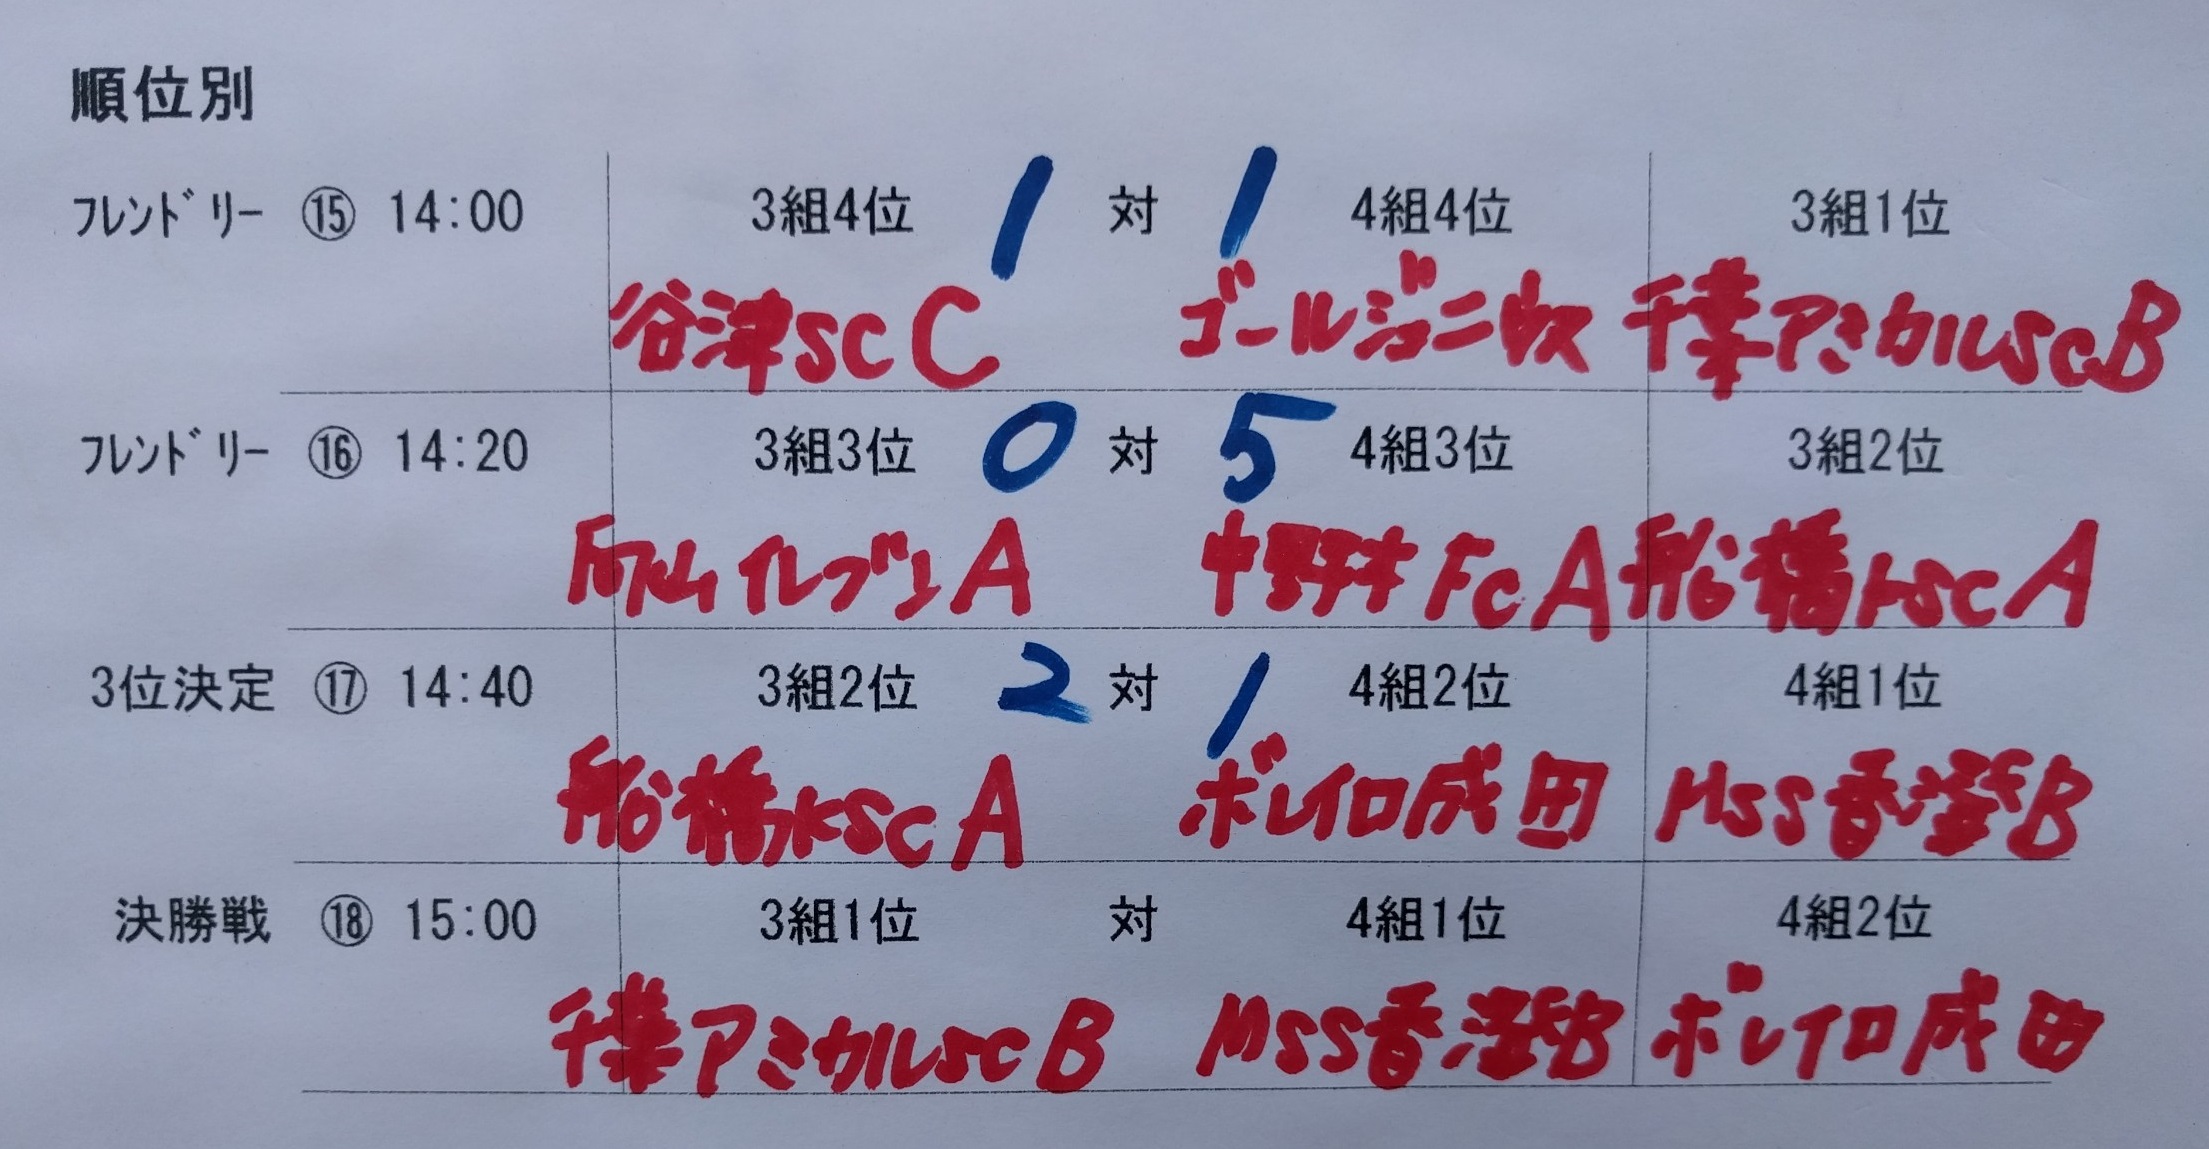 順位別
フレンドリー ⑮ 14:00 3組4位 1 対 1 4組4位 3組1位
谷津SC C ゴールジュニ 千葉アミカルSC B
フレンドリー ⑯ 14:20 3組3位 0 対 5 4組3位 3組2位
イレブン A 中野木FC A 船橋KSC A
3位決定 ⑰ 14:40 3組2位 2 対 1 4組2位 4組1位
船橋KSC A ボレイロ成田 MSS香澄B
決勝戦 ⑱ 15:00 3組1位 対 4組1位 4組2位
千葉アミカルSC B MSS香澄B ボレイロ成田